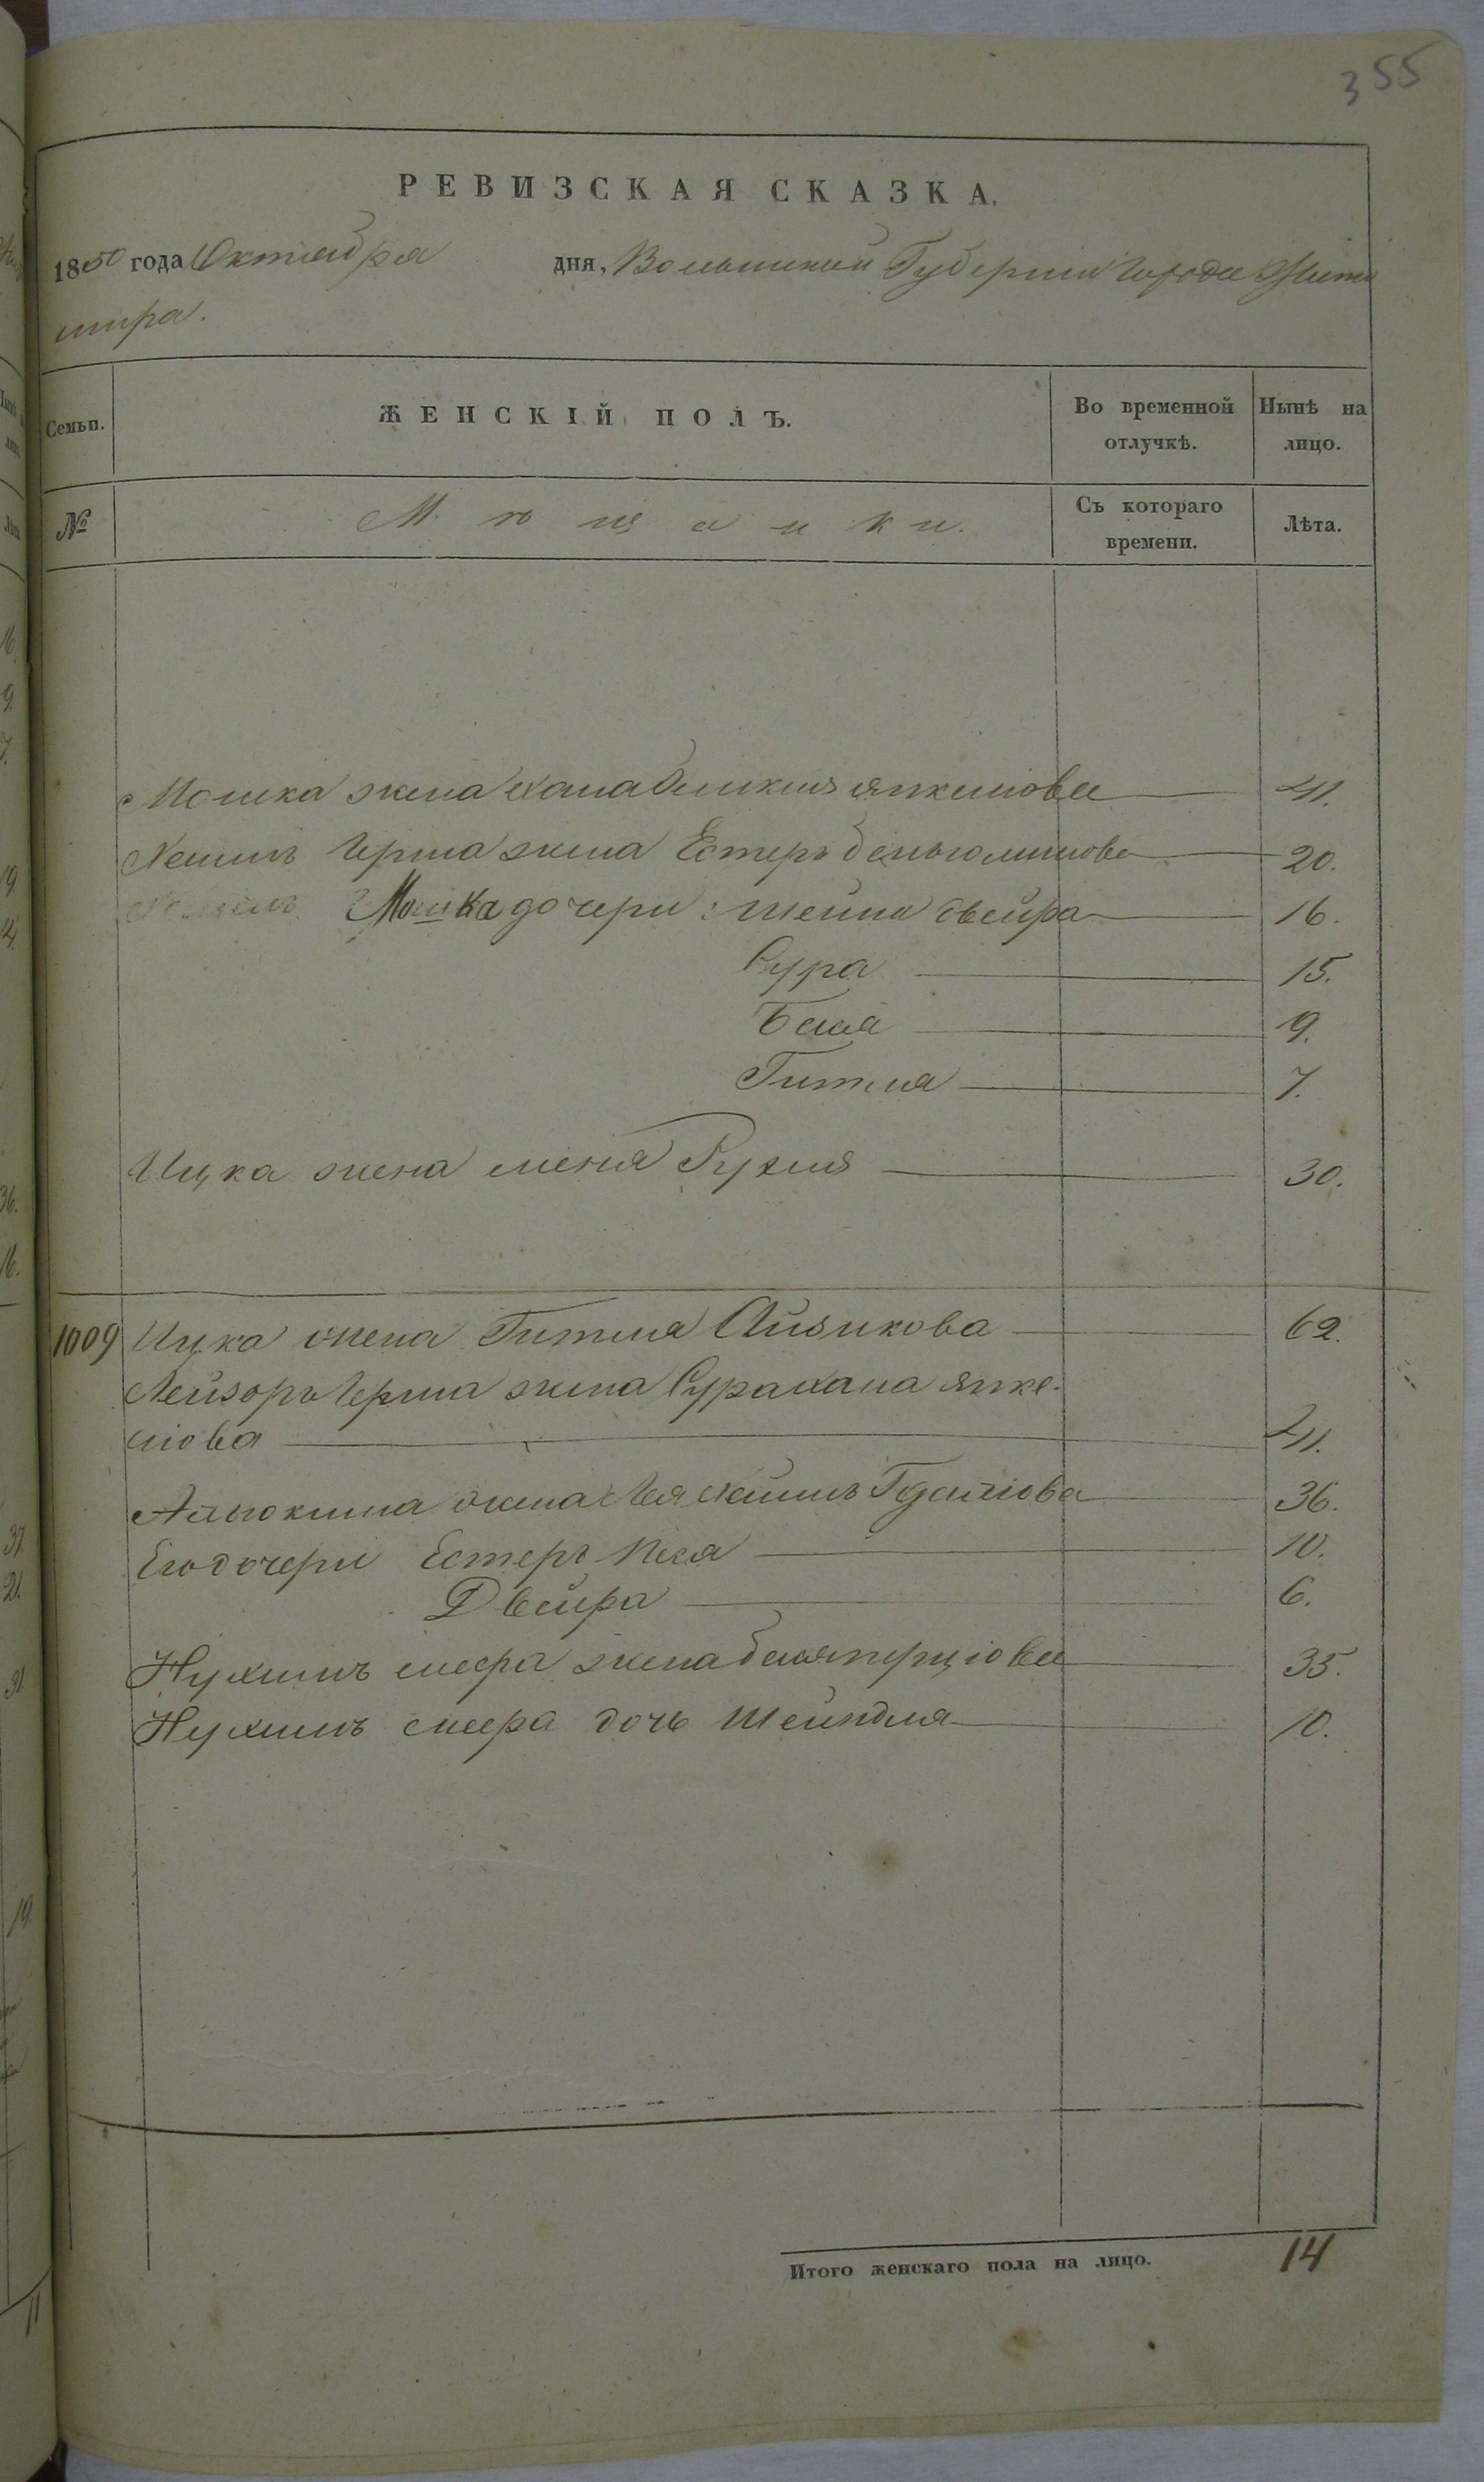 355
РЕВИЗСКАЯ СКАЗКА.
1850 года Октября дня, Волынской Губернии Города Жито
мира.
Семьи.
ЖЕНСКІЙ ПОЛЪ.
Во временной отлучкѣ.
Нынѣ на лицо.
№
Мѣщанки.
Съ котораго времени.
Лѣта.
Мошка жена Хана Янкелиова 41.
Герша жена Естеръ Беньюминова 20.
Мошка дочери: Шейна Двейра 16.
Сура 15.
Бася 9.
Гитля 7.
Ицка жена Рухля 30.
1009 Ицка жена Гитля Айзикова 62.
Лейзоръ Герша жена Сура Хана Янке-
лiова 41.
жена Лея 36.
Его дочери Естеръ Песя 10.
Двейра 6.
Нухимъ жена 35.
Нухимъ дочь Шейндля 10.
Итого женскаго пола на лицо. 14